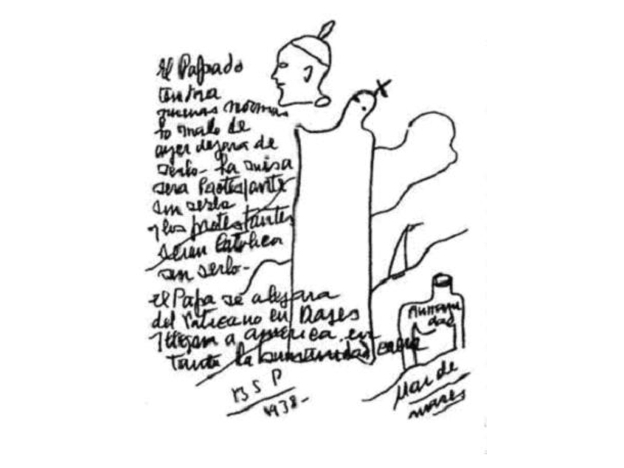 El Papado
tendra
nuevas normas
lo malo de
ayer dejara de
serlo - La misa
sera Protestante
sin serlo
y los protestantes
seran Catolica
sin serlo -
El Papa se alejara
del Vaticano en viajes
y llegara a america, en
tanto la humanidad caera
BSP
1938-
dad
Mar de
mares